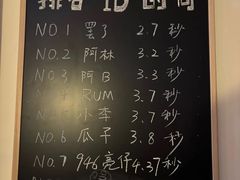 排名 ID 时间
NO.1 罢了 2.7秒
NO.2 阿林 3.2秒
NO.3 阿B 3.3秒
RUM 3.7秒
小李 3.7秒
NO.6 瓜子 3.8秒
NO.7 946亮仔4.37秒